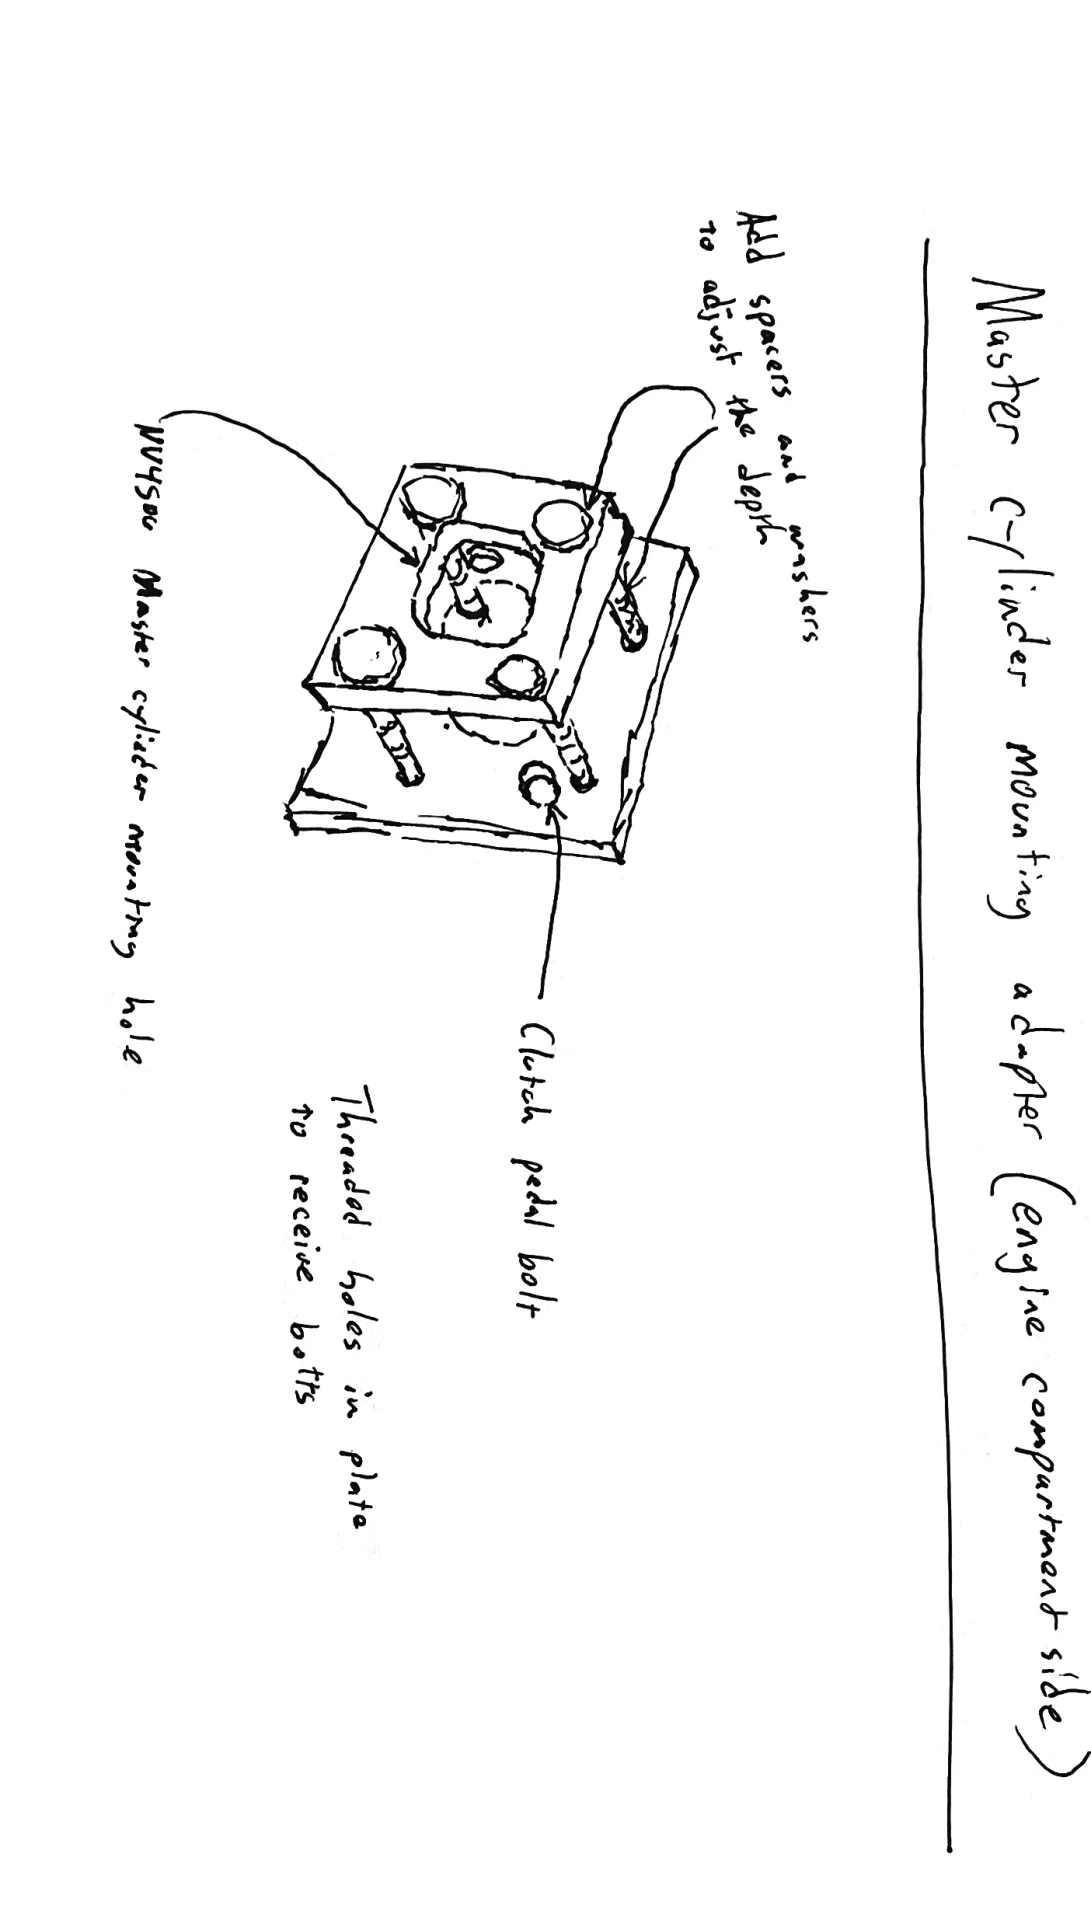 Master cylinder mounting adapter (engine compartment side)
Add spacers and washers
to adjust the depth
Clutch pedal bolt
Threaded holes in plate
to receive bolts
NV4500 Master cylieder mounting hole